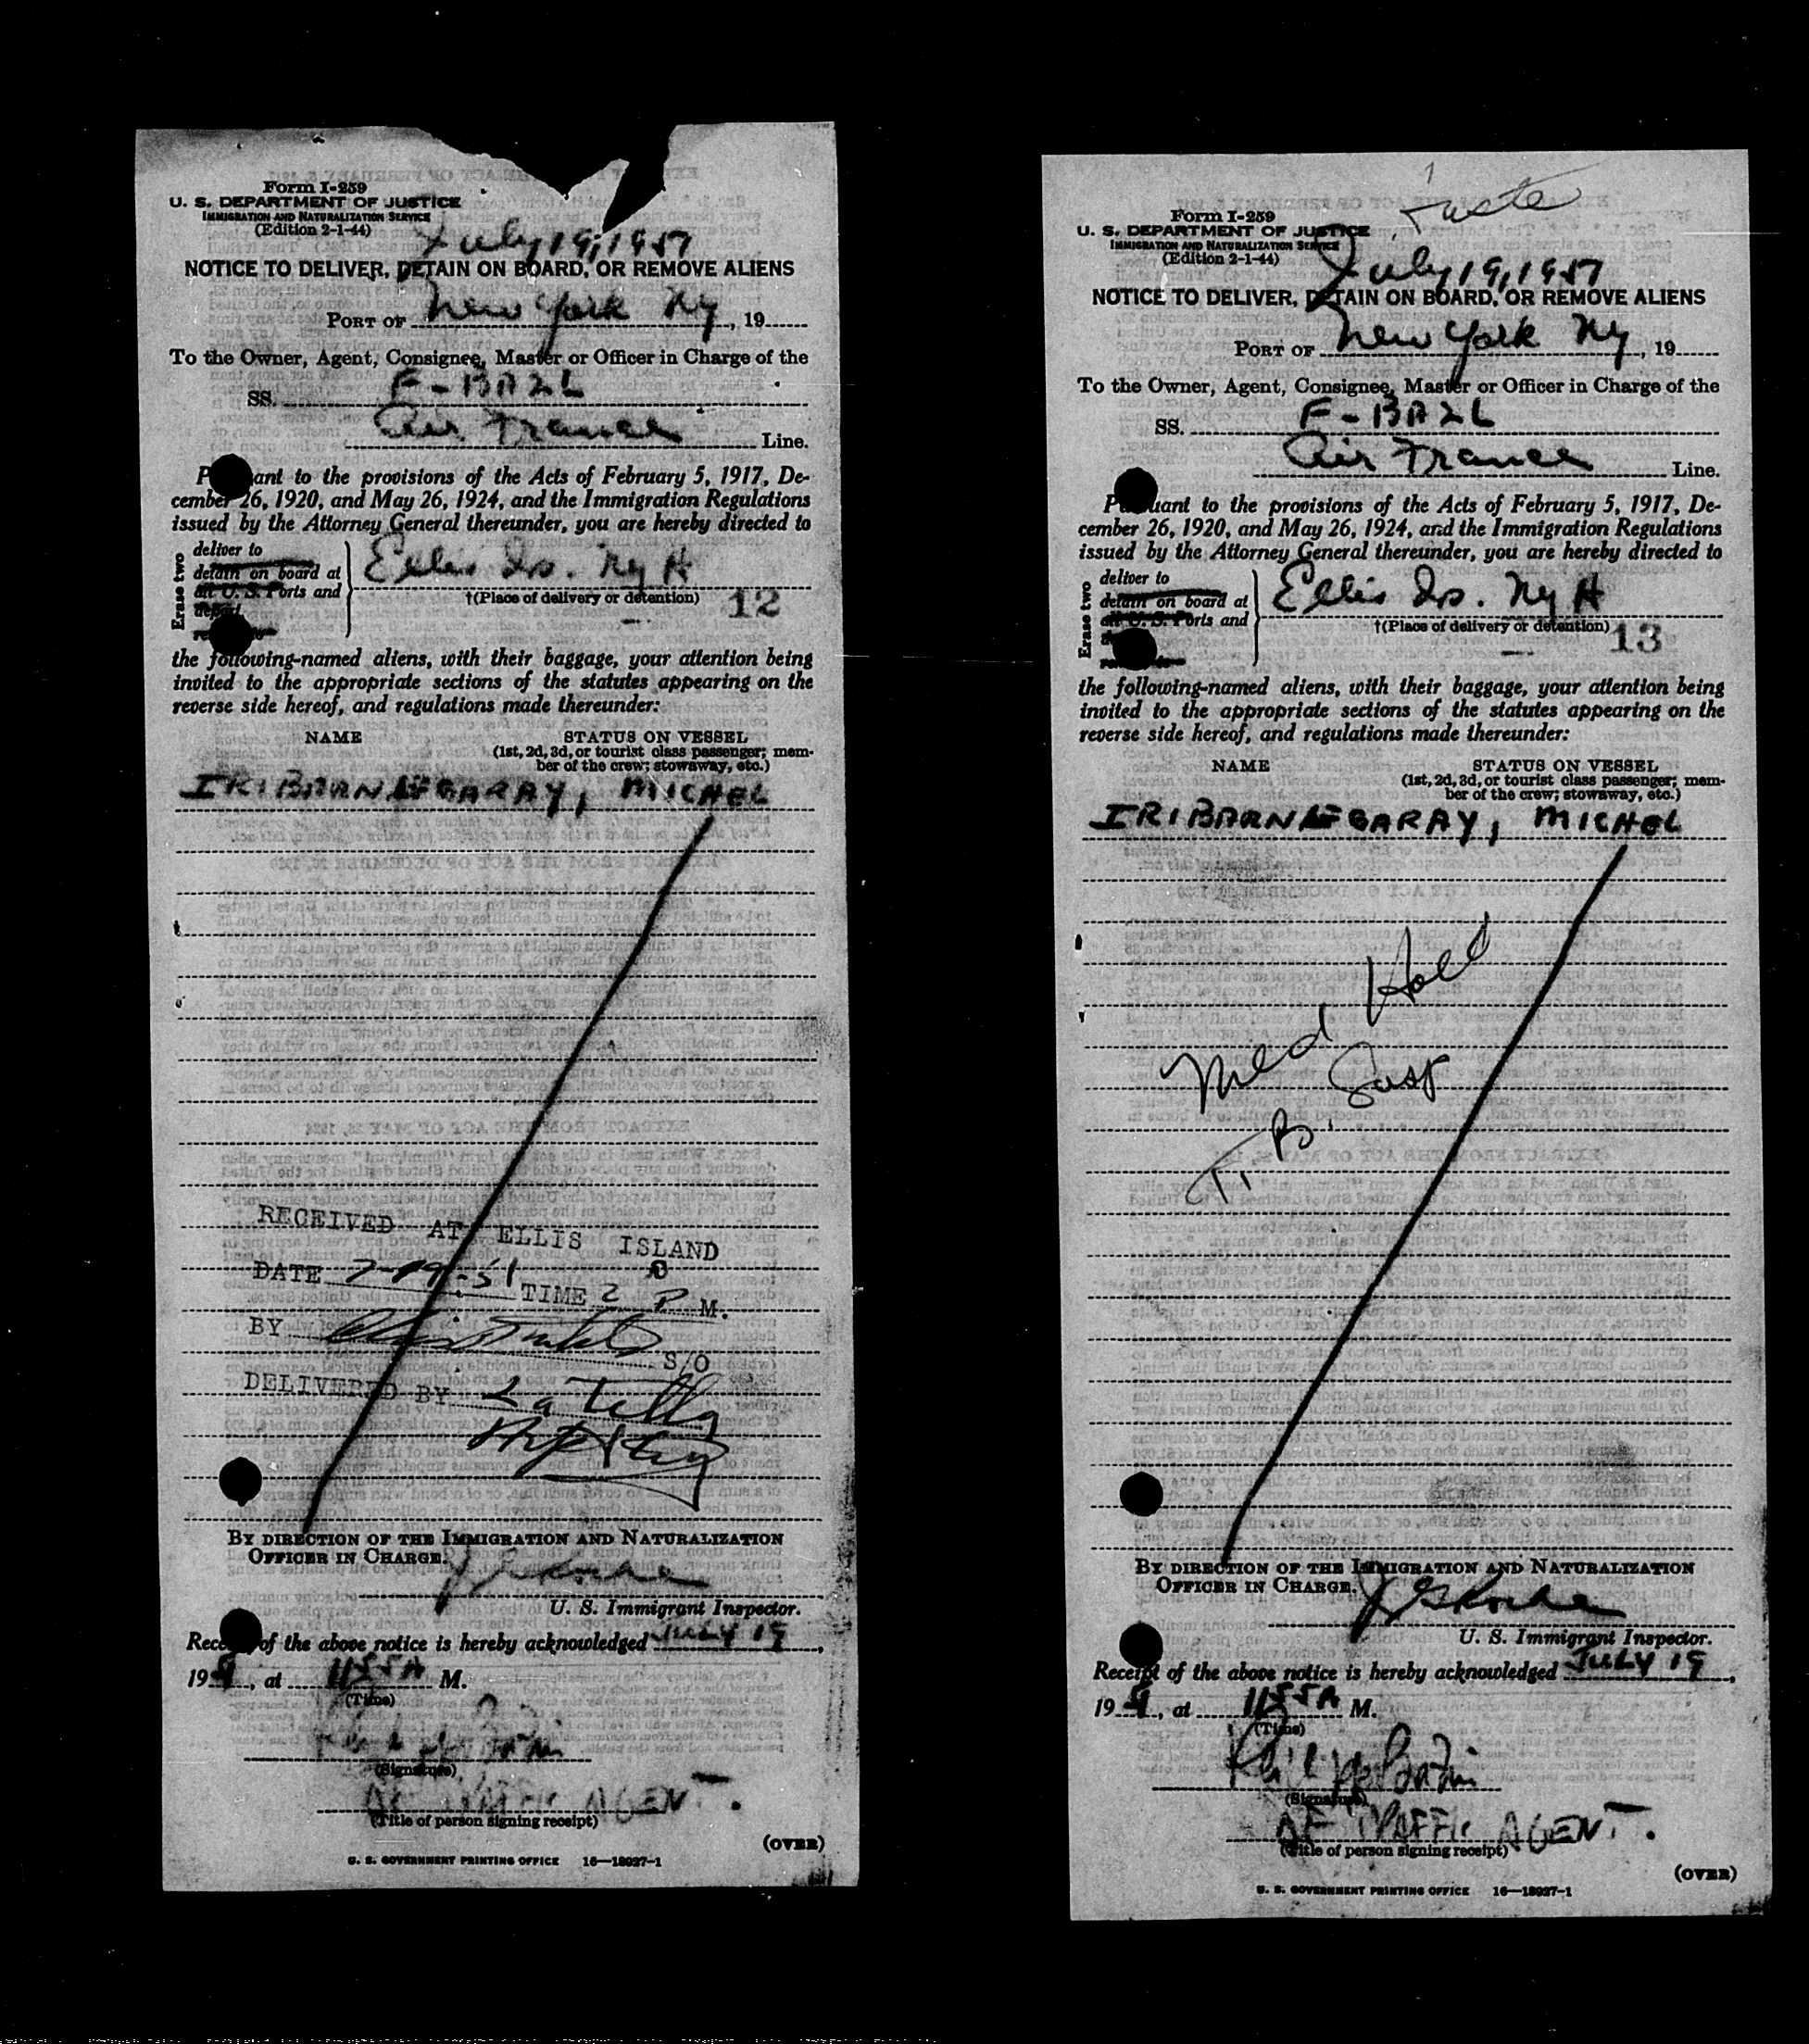 Form I-259
U. S. DEPARTMENT OF JUSTICE
IMMIGRATION AND NATURALIZATION SERVICE
(Edition 2-1-44)
July 19, 1951
NOTICE TO DELIVER, DETAIN ON BOARD, OR REMOVE ALIENS
PORT OF New York Ny, 19
To the Owner, Agent, Consignee, Master or Officer in Charge of the
SS. F-BAZL
Air France Line.
ant to the provisions of the Acts of February 5, 1917, De-
cember 26, 1920, and May 26, 1924, and the Immigration Regulations
issued by the Attorney General thereunder, you are hereby directed to
Erase two
deliver to
detain on board at
all U. S. Ports and
deport
Ellis Is. Ny H
†(Place of delivery or detention) 12
the following-named aliens, with their baggage, your attention being
invited to the appropriate sections of the statutes appearing on the
reverse side hereof, and regulations made thereunder:
NAME STATUS ON VESSEL
(1st, 2d, 3d, or tourist class passenger; mem-
ber of the crew; stowaway, etc.)
IRIBARNEGARAY, MICHEL
RECEIVED AT ELLIS ISLAND
DATE 7-19-51 TIME 2 P M.
BY S/O
DELIVERED BY
BY DIRECTION OF THE IMMIGRATION AND NATURALIZATION
OFFICER IN CHARGE.
U. S. Immigrant Inspector.
Rece of the above notice is hereby acknowledged JULY 19,
1951, at 1155A M.
(Time)
(Signature)
AF TRAFFIC AGENT.
(Title of person signing receipt)
(OVER)
U. S. GOVERNMENT PRINTING OFFICE 16—18027-1
Form I-259
U. S. DEPARTMENT OF JUSTICE
IMMIGRATION AND NATURALIZATION SERVICE
(Edition 2-1-44)
July 19, 1951
NOTICE TO DELIVER, DETAIN ON BOARD, OR REMOVE ALIENS
PORT OF New York Ny, 19
To the Owner, Agent, Consignee, Master or Officer in Charge of the
SS. F-BAZL
Air France Line.
P uant to the provisions of the Acts of February 5, 1917, De-
cember 26, 1920, and May 26, 1924, and the Immigration Regulations
issued by the Attorney General thereunder, you are hereby directed to
Erase two
deliver to
detain on board at
all U. S. Ports and
Ellis Is. Ny H
†(Place of delivery or detention) 13
the following-named aliens, with their baggage, your attention being
invited to the appropriate sections of the statutes appearing on the
reverse side hereof, and regulations made thereunder:
NAME STATUS ON VESSEL
(1st, 2d, 3d, or tourist class passenger; mem-
ber of the crew; stowaway, etc.)
IRIBARNEGARAY, MICHEL
Med. Hold
T. B. Susp
BY DIRECTION OF THE IMMIGRATION AND NATURALIZATION
OFFICER IN CHARGE.
U. S. Immigrant Inspector.
Receipt of the above notice is hereby acknowledged JULY 19,
1951, at 1155A M.
(Time)
(Signature)
AF TRAFFIC AGENT.
(Title of person signing receipt)
(OVER)
U. S. GOVERNMENT PRINTING OFFICE 16—18027-1